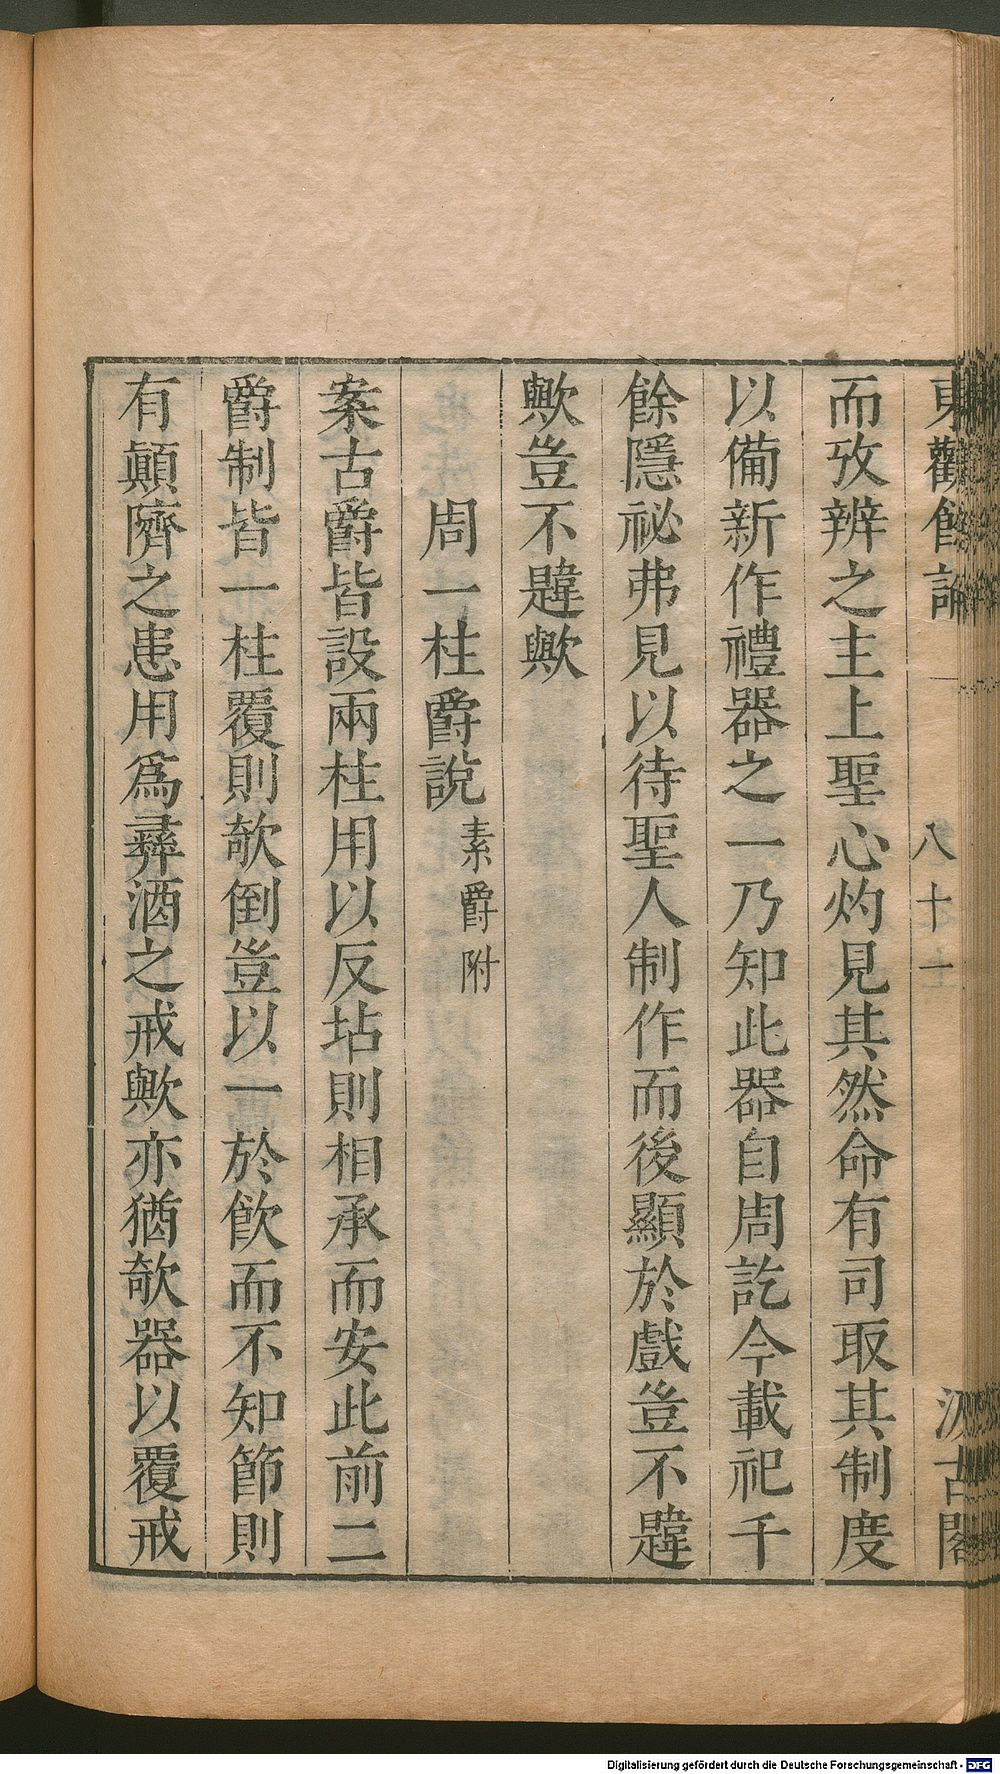 東觀餘論 八十一 汲古閣
而攷辨之主上聖心灼見其然命有司取其制度
以備新作禮器之一乃知此器自周訖今載祀千
餘隱祕弗見以待聖人制作而後顯於戲豈不韙
歟豈不韙歟
周一柱爵說素爵附
案古爵皆設兩柱用以反坫則相承而安此前二
爵制皆一柱覆則欹倒豈以一於飲而不知節則
有顚隮之患用爲彝酒之戒歟亦猶欹器以覆戒
Digitalisierung gefördert durch die Deutsche Forschungsgemeinschaft - DFG